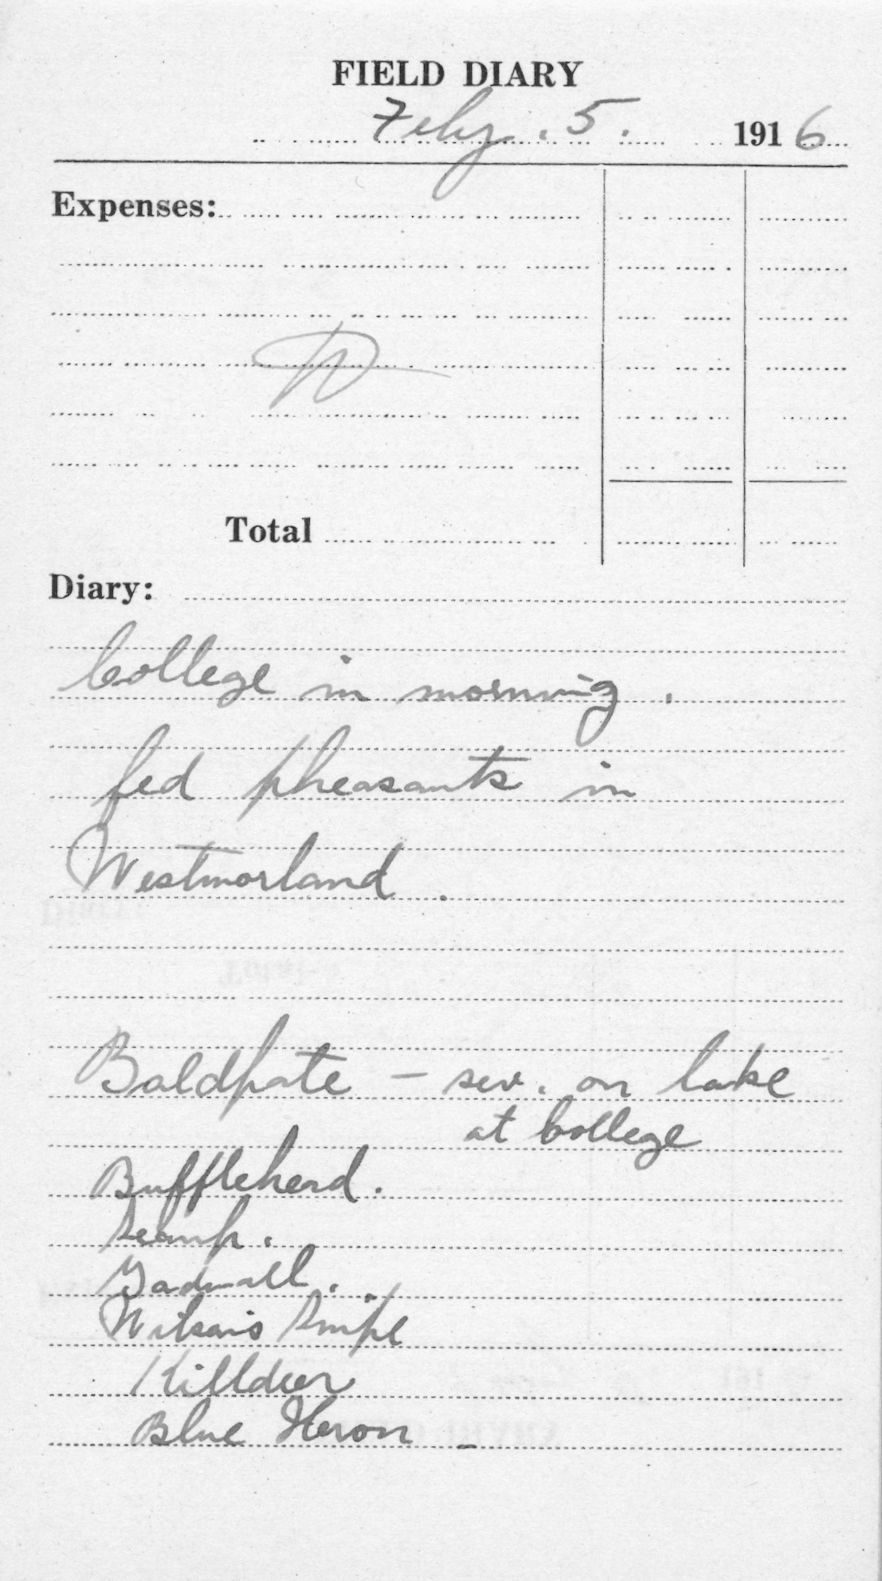 FIELD DIARY
Feby. 5. 1916
Expenses:
W
Total
Diary:
College in morning.
fed pheasants in
Westmorland.
Baldpate – sev. on lake
at College
Bufflehead.
Scaup.
Gadwall.
Wilson's Snipe
Killdeer
Blue Heron –